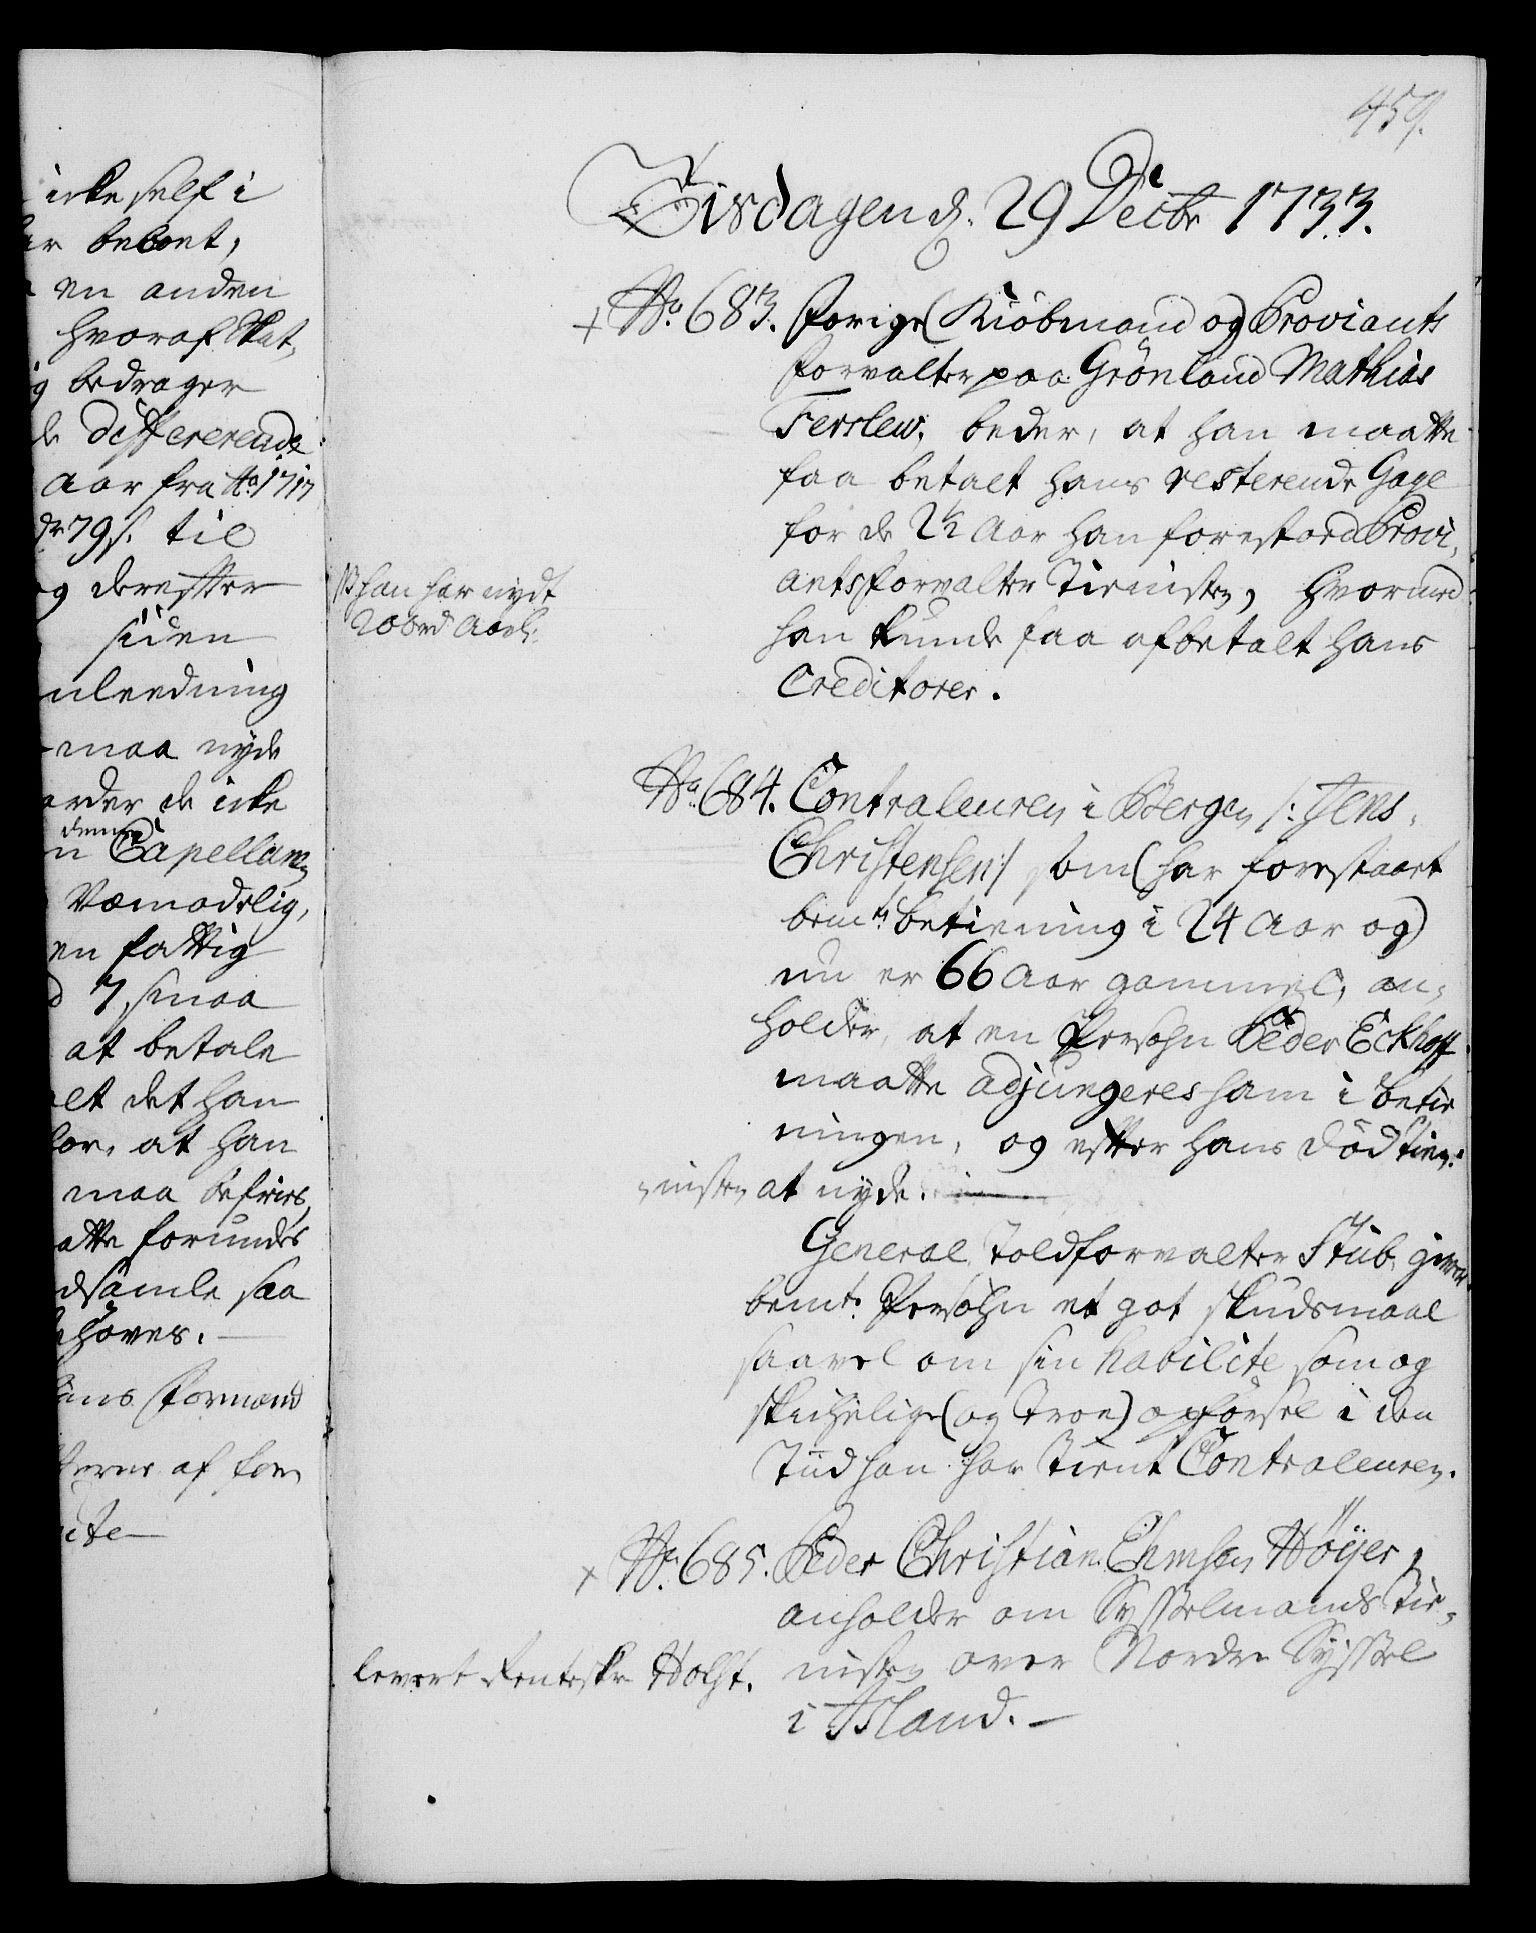 icke self i
beboet,
en anden
hvoraf Skat,
bedrager
de differerende
Aar fra Ao 1717
79 s. til
og derefter
siden
nleedning
maa nyde
arder de icke
denne
n Capellanz
Væmodelig,
en fattig
7 smaa
at betale
alt det han
for, at han
maa befries,
atte forundes
dsamle saa
høves.
ans Formand
erne af for
459.
Tisdagen d. 29 Decbr 1733.
+ No. 683. Forige (Kiøbmand og) Proviants
forvalter paa Grönland Mathias
Ferslew, beder, at han maatte
faa betalt hans resterende Gage
for de 2 1/2 Aar han forestoed Provi,
antsforvalter Tienisten, hvormed
han kunde faa afbetalt hans
Creditorer.
han har nydt
200 rd Aarl.
No. 684. Contraleuren i Bergen /: Jens
Christensen :/ som (har forestaaet
bemte betiening i 24 Aar og)
nu er 66 Aar gammel, an,
holder, at en Persohn Peder Eckhoff
maatte adjungeres ham i betie
ningen, og efter hans Död tien,
nisten at nyde.
General Toldforvalter Stub, giver
bemte Persohn et got skudsmaal
saavel om sin habilite som og
skichelige (og troe) opförsel i den
Tiid han har tient Contraleuren.
+ No. 685. Peder Christian Ehmsen Höÿer,
anholder om Sysselmands Tie,
nisten over Nordre Syssel
i Island.
levert Renteskr. Holst.